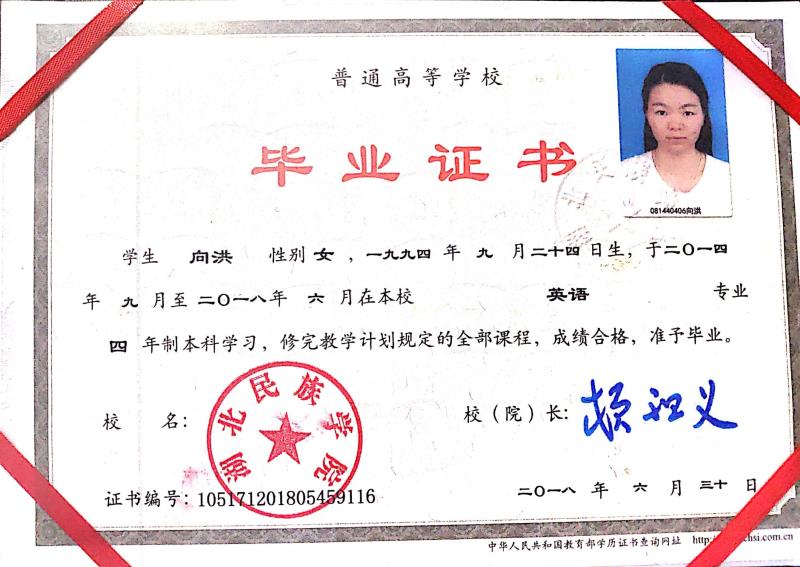 普通高等学校
毕业证书
081440406向洪
学生 向洪 性别 女，一九九四 年 九 月二十四日生，于二〇一四
年 九 月至二〇一八年 六 月在本校 英语 专业
四 年制本科学习，修完教学计划规定的全部课程，成绩合格，准予毕业。
湖北民族学院
校 名： 校（院）长：
证书编号：105171201805459116
二〇一八 年 六 月 三十 日
中华人民共和国教育部学历证书查询网址